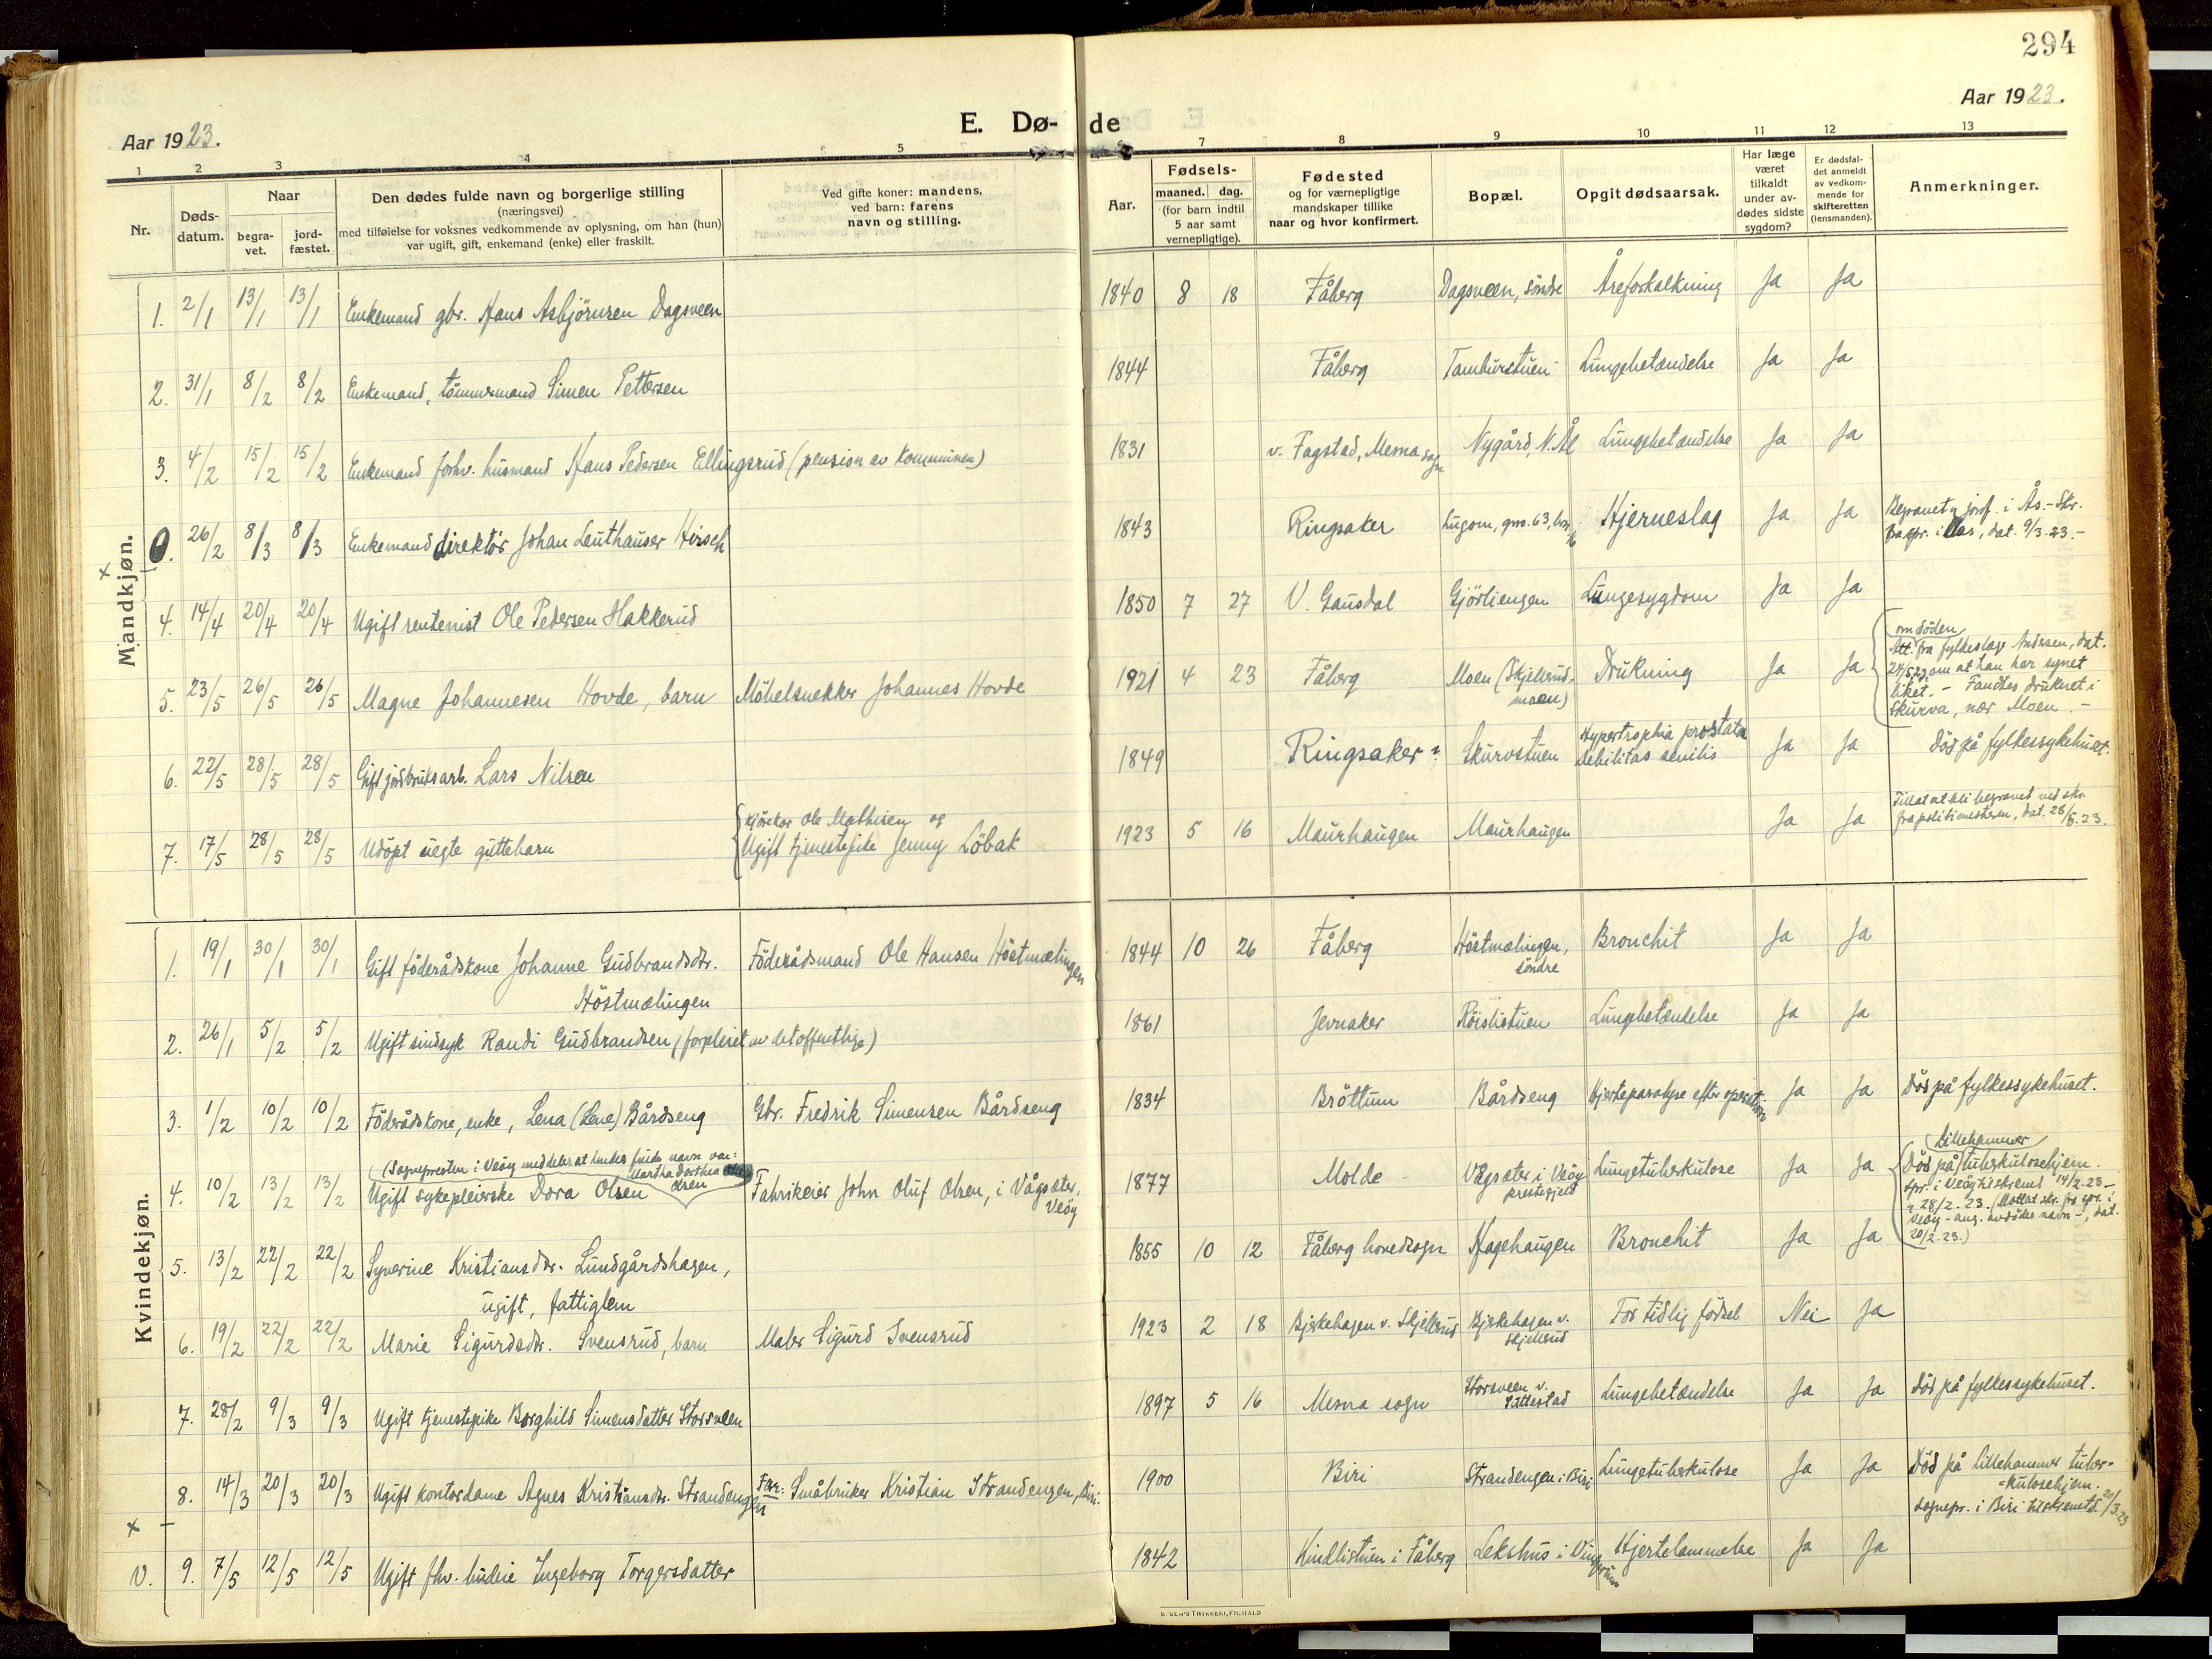 294
Aar 1923.
E. Dø- de
Aar 1923.
1 2 3 4 5 7 8 9 10 11 12 13
Nr.
Døds-
datum.
Naar
begra-
vet.
jord-
fæstet.
Den dødes fulde navn og borgerlige stilling
(næringsvei)
med tilføielse for voksnes vedkommende av oplysning, om han (hun)
var ugift, gift, enkemand (enke) eller fraskilt.
Ved gifte koner: mandens,
ved barn: farens
navn og stilling.
Aar.
Fødsels-
maaned. dag.
(for barn indtil
5 aar samt
vernepligtige).
Fødested
og for værnepligtige
mandskaper tillike
naar og hvor konfirmert.
Bopæl.
Opgit dødsaarsak.
Har læge
været
tilkaldt
under av-
dødes sidste
sygdom?
Er dødsfal-
det anmeldt
av vedkom-
mende for
skifteretten
(lensmanden).
Anmerkninger.
Mandkjøn.
1. 2/1 13/1 13/1 Enkemand gbr. Hans Asbjörnsen Dagsveen 1840 8 18 Fåberg Dagsveen, söndre Åreforkalkning Ja Ja
2. 31/1 8/2 8/2 Enkemand, tömmermand Simen Pettersen 1844 Fåberg Tamburstuen Lungebetændelse Ja Ja
3. 4/2 15/2 15/2 Enkemand forhv. husmand Hans Pedersen Ellingsrud (pension av kommunen) 1831 v. Fagstad, Mesna sogn Nygård, N. Ål Lungebetændelse Ja Ja
0. 26/2 8/3 8/3 Enkemand direktör Johan Leuthäuser Hirsch 1843 Ringsaker Lugom, gno. 63, bno. Hjerneslag Ja Ja Begravet & jordf. i Ås. - Skr.
fra spr. i Aas, dat. 9/3.23.-
4. 14/4 20/4 20/4 Ugift rentenist Ole Pedersen Hakkerud 1850 7 27 V. Gausdal Gjörliengen Lungesygdom Ja Ja
5. 23/5 26/5 26/5 Magne Johannesen Hovde, barn Möbelsnekker Johannes Hovde 1921 4 23 Fåberg Moen (Skjellerud-
moen) Drukning Ja Ja om döden
Att. fra fylkeslæge Andersen, dat.
24/5 23 om at han har synet
liket. - Fandtes druknet i
Skurva, nær Moen. -
6. 22/5 28/5 28/5 Gift jordbruksarb. Lars Nilsen 1849 Ringsaker Skurvstuen Hypertrophia prostata
Debilitas senilis Ja Ja död på fylkessykehuset.
7. 17/5 28/5 28/5 Udöpt uegte guttebarn Kjörekar Ole Mathisen og
Ugift tjenestepike Jenny Löbak 1923 5 16 Maurhaugen Maurhaugen Ja Ja Tillat at bli begravet ved skr.
fra politimesteren, dat. 28/5.23.
Kvindekjøn.
1. 19/1 30/1 30/1 Gift föderådskone Johanne Gudbrandsdtr.
Höstmælingen Föderådsmand Ole Hansen Höstmælingen 1844 10 26 Fåberg Höstmælingen,
söndre Bronchit Ja Ja
2. 26/1 5/2 5/2 Ugift sindsyk Randi Gudbrandsen (forpleiet av det offentlige) 1861 Jevnaker Röislistuen Lungebetændelse Ja Ja
3. 1/2 10/2 10/2 Föderådskone, enke, Lena (Lene) Bårdseng Gbr. Fredrik Simensen Bårdseng 1834 Bröttum Bårdseng Hjerteparalyse efter operation Ja Ja Död på fylkessykehuset.
(Sognepresten i Veöy meddeler at hendes fulde navn var:
Martha Dorthea
Olsen
4. 10/2 13/2 13/2 Ugift sykepleierske Dora Olsen Fabrikeier John Oluf Olsen, i Vågsæter,
Veöy 1877 Molde Vågsæter i Veöy
prestegjeld Lungetuberkulose Ja Ja Lillehammer
Död på tuberkulosehjem.
Spr. i Veöy tilskrevet 14/2.23 -
& 28/2.23. (Mottat skr. fra spr. i
Veöy - ang. avdödes navn -, dat.
20/2.23.)
5. 13/2 22/2 22/2 Syverine Kristiansdtr. Lundgårdshagen,
ugift, fattiglem 1855 10 12 Fåberg hovedsogn Hagehaugen Bronchit Ja Ja
6. 19/2 22/2 22/2 Marie Sigurdsdtr. Svensrud, barn Maler Sigurd Svensrud 1923 2 18 Bjerkehagen v. Skjellerud Bjerkehagen v.
Skjellerud For tidlig födsel Nei Ja
7. 28/2 9/3 9/3 Ugift tjenestepike Borghild Simensdatter Storsveen 1897 5 16 Mesna sogn Storsveen v.
Sættestad Lungebetændelse Ja Ja död på fylkessykehuset.
8. 14/3 20/3 20/3 Ugift kontordame Agnes Kristiansdtr. Strandengen Far: Småbruker Kristian Strandengen, Biri. 1900 Biri Strandengen i Biri Lungetuberkulose Ja Ja Död på Lillehammer tuber-
=kulosehjem.
Sognepr. i Biri tilskrevet 20/3.23
V. 9. 7/5 12/5 12/5 Ugift fhv. budeie Ingeborg Torgersdatter 1842 Kindlistuen i Fåberg Lekshus i Vingrom Hjertelammelse Ja Ja